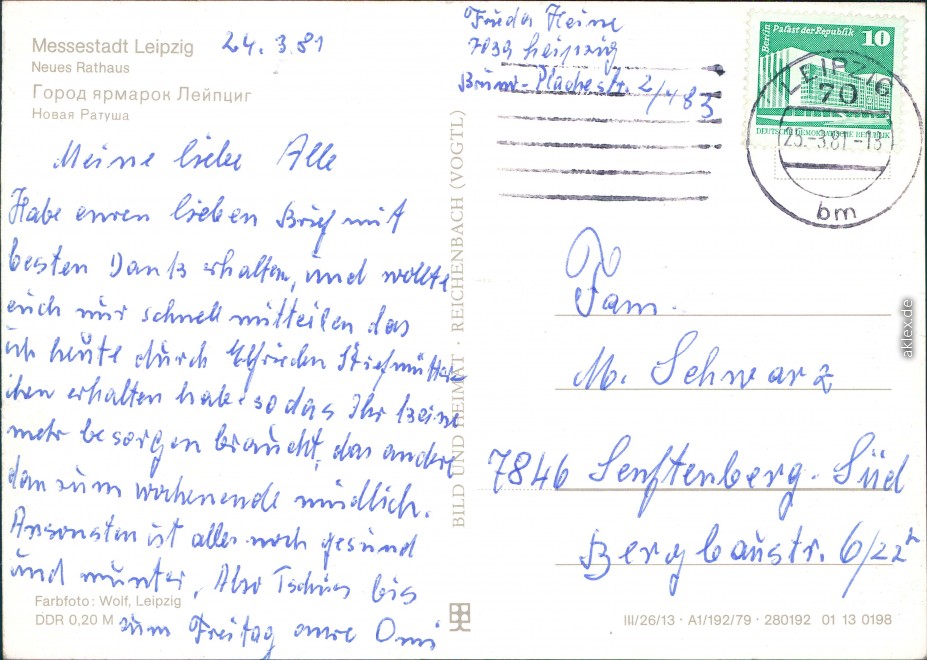 Messestadt Leipzig
Neues Rathaus
Город ярмарок Лейпциг
Новая Ратуша
24. 3. 81
Meine liebe Alle
Habe euren lieben Brief mit
besten Dank erhalten, und wollte
euch nur schnell mitteilen das
ich heute durch Elfrieden Stiefmütter
chen erhalten habe so das Ihr keine
mehr besorgen braucht, das andere
dan zum wochenende mündlich.
Ansonsten ist alles noch gesund
und munter, Also Tschüss bis
zum Freitag eure Omi
Farbfoto: Wolf, Leipzig
DDR 0,20 M
BILD UND HEIMAT · REICHENBACH (VOGTL)
Frieda Heine
7039 Leipzig
Brun-Plachestr. 2/483
Berlin Palast der Republik 10
DEUTSCHE DEMOKRATISCHE REPUBLIK
LEIPZIG
70
25.-3.81-18
bm
Fam.
M. Schwarz
7846 Senftenberg-Süd
Bergbaustr. 6/22
III/26/13 · A1/192/79 · 280192 01 13 0198
aklex.de